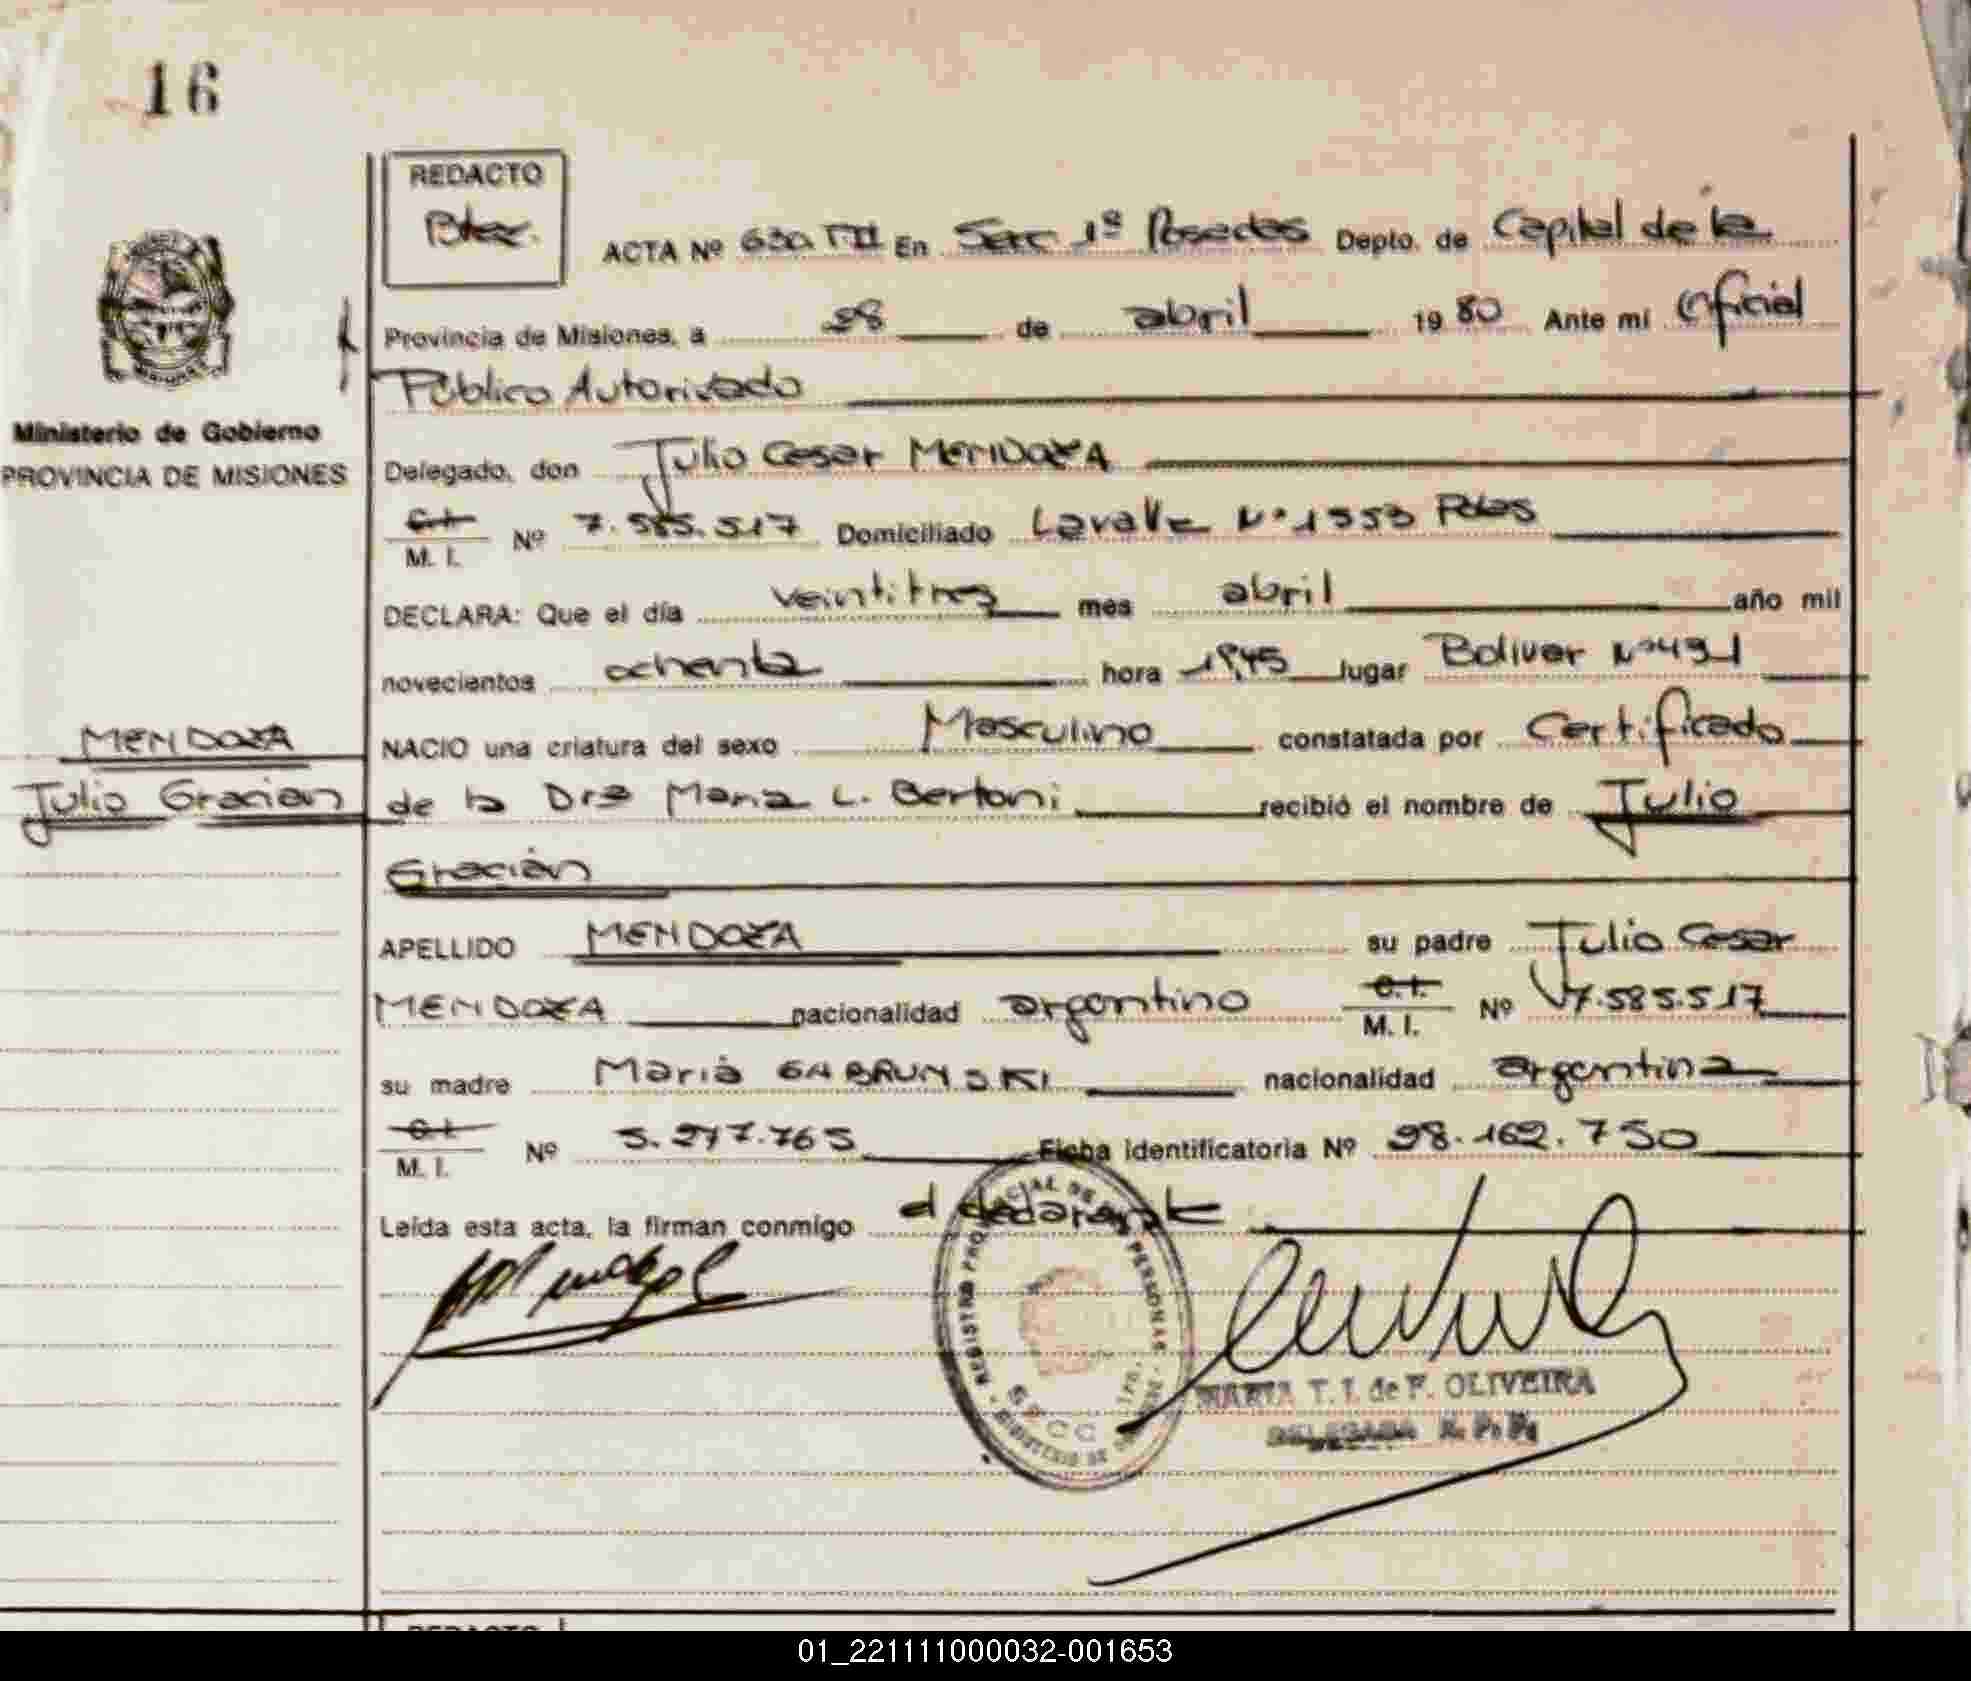 16
REDACTO
ACTA Nº 630 TIII En Secc 1ª Posadas Depto. de Capital de la
Provincia de Misiones, a 28 de abril 1980 Ante mi Oficial
Público Autorizado
Ministerio de Gobierno
PROVINCIA DE MISIONES
Delegado, don Julio Cesar MENDOZA
C.I.
M. I. Nº 7.585.517 Domiciliado Lavalle Nº 1553 Pdas
DECLARA: Que el día veintitres mes abril año mil
novecientos ochenta hora 19,45 lugar Bolivar Nº 491
MENDOZA
NACIO una criatura del sexo Masculino constatada por Certificado
Julio Gracian
de la Dra Maria L. Bertoni recibió el nombre de Julio
Gracián
APELLIDO MENDOZA su padre Julio Cesar
MENDOZA nacionalidad argentino C.I. M. I. Nº 7.585.517
su madre María GABRUNSKI nacionalidad argentina
C.I.
M. I. Nº 5.277.765 Ficha identificatoria Nº 28.162.750
Leída esta acta, la firman conmigo el declarante
REGISTRO PROVINCIAL DE LAS PERSONAS
MARIA T. I. de F. OLIVEIRA
DELEGADA R. P. P.
REDACTO
01_221111000032-001653